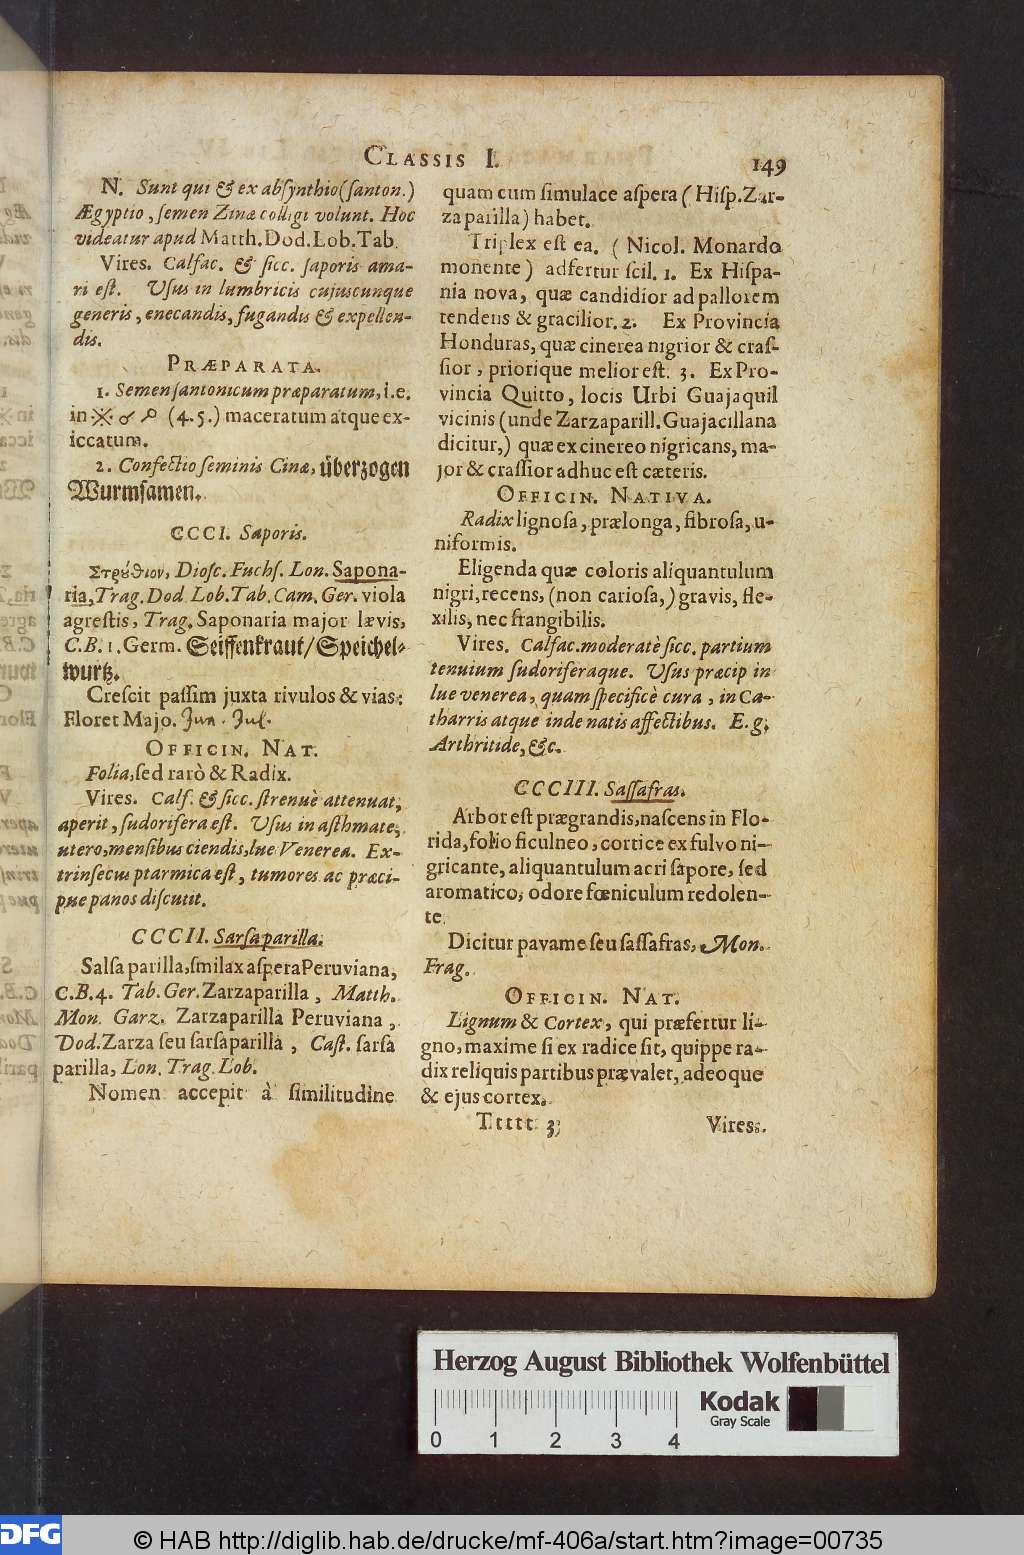 CLASSIS I. 149
N. Sunt qui & ex absynthio (santon.)
Ægyptio, semen Zinæ colligi volunt. Hoc
videatur apud Matth. Dod. Lob. Tab.
Vires. Calfac. & sicc. saporis ama-
ri est. Usus in lumbricis cujuscunque
generis, enecandis, fugandis & expellen-
dis.
PRÆPARATA.
1. Semen santonicum præparatum, i.e.
in (4.5.) maceratum atque ex-
iccatum.
2. Confectio seminis Cinæ, überzogen
Wurmsamen.
CCCI. Saporis.
Στρȣ́θιον, Diosc. Fuchs. Lon. Sapona-
ria, Trag. Dod. Lob. Tab. Cam. Ger. viola
agrestis, Trag. Saponaria major lævis,
C.B. 1. Germ. Seiffenkraut / Speichel-
wurtz.
Crescit passim juxta rivulos & vias:
Floret Majo. Jun. Jul.
OFFICIN. NAT.
Folia, sed rarò & Radix.
Vires. Calf. & sicc. strenuè attenuat,
aperit, sudorifera est. Usus in asthmate,
utero, mensibus ciendis, lue Venerea. Ex-
trinsecus ptarmica est, tumores ac præci-
pue panos discutit.
CCCII. Sarsaparilla.
Salsa parilla, smilax aspera Peruviana,
C.B. 4. Tab. Ger. Zarzaparilla, Matth.
Mon. Garz. Zarzaparilla Peruviana,
Dod. Zarza seu sarsaparilla, Cast. sarsa
parilla, Lon. Trag. Lob.
Nomen accepit à similitudine
quam cum simulace aspera (Hisp. Zar-
zaparilla) habet.
Triplex est ea. (Nicol. Monardo
monente) adfertur scil. 1. Ex Hispa-
nia nova, quæ candidior ad pallorem
tendens & gracilior. 2. Ex Provincia
Honduras, quæ cinerea nigrior & cras-
sior, priorique melior est. 3. Ex Pro-
vincia Quitto, locis Urbi Guajaquil
vicinis (unde Zarzaparill. Guajacillana
dicitur,) quæ ex cinereo nigricans, ma-
jor & crassior adhuc est cæteris.
OFFICIN. NATIVA.
Radix lignosa, prælonga, fibrosa, u-
niformis.
Eligenda quæ coloris aliquantulum
nigri, recens, (non cariosa,) gravis, fle-
xilis, nec frangibilis.
Vires. Calfac. moderatè sicc. partium
tenuium sudoriferaque. Usus præcip in
lue venerea, quam specificè cura, in Ca-
tharris atque inde natis affectibus. E. g.
Arthritide, &c.
CCCIII. Sassafras.
Arbor est prægrandis, nascens in Flo-
rida, folio ficulneo, cortice ex fulvo ni-
gricante, aliquantulum acri sapore, sed
aromatico, odore fœniculum redolen-
te.
Dicitur pavame seu sassafras, Mon.
Frag.
OFFICIN. NAT.
Lignum & Cortex, qui præfertur li-
gno, maxime si ex radice sit, quippe ra-
dix reliquis partibus prævalet, adeoque
& ejus cortex.
Ttttt 3 Vires.
Herzog August Bibliothek Wolfenbüttel
Kodak
Gray Scale
0 1 2 3 4
DFG
© HAB http://diglib.hab.de/drucke/mf-406a/start.htm?image=00735